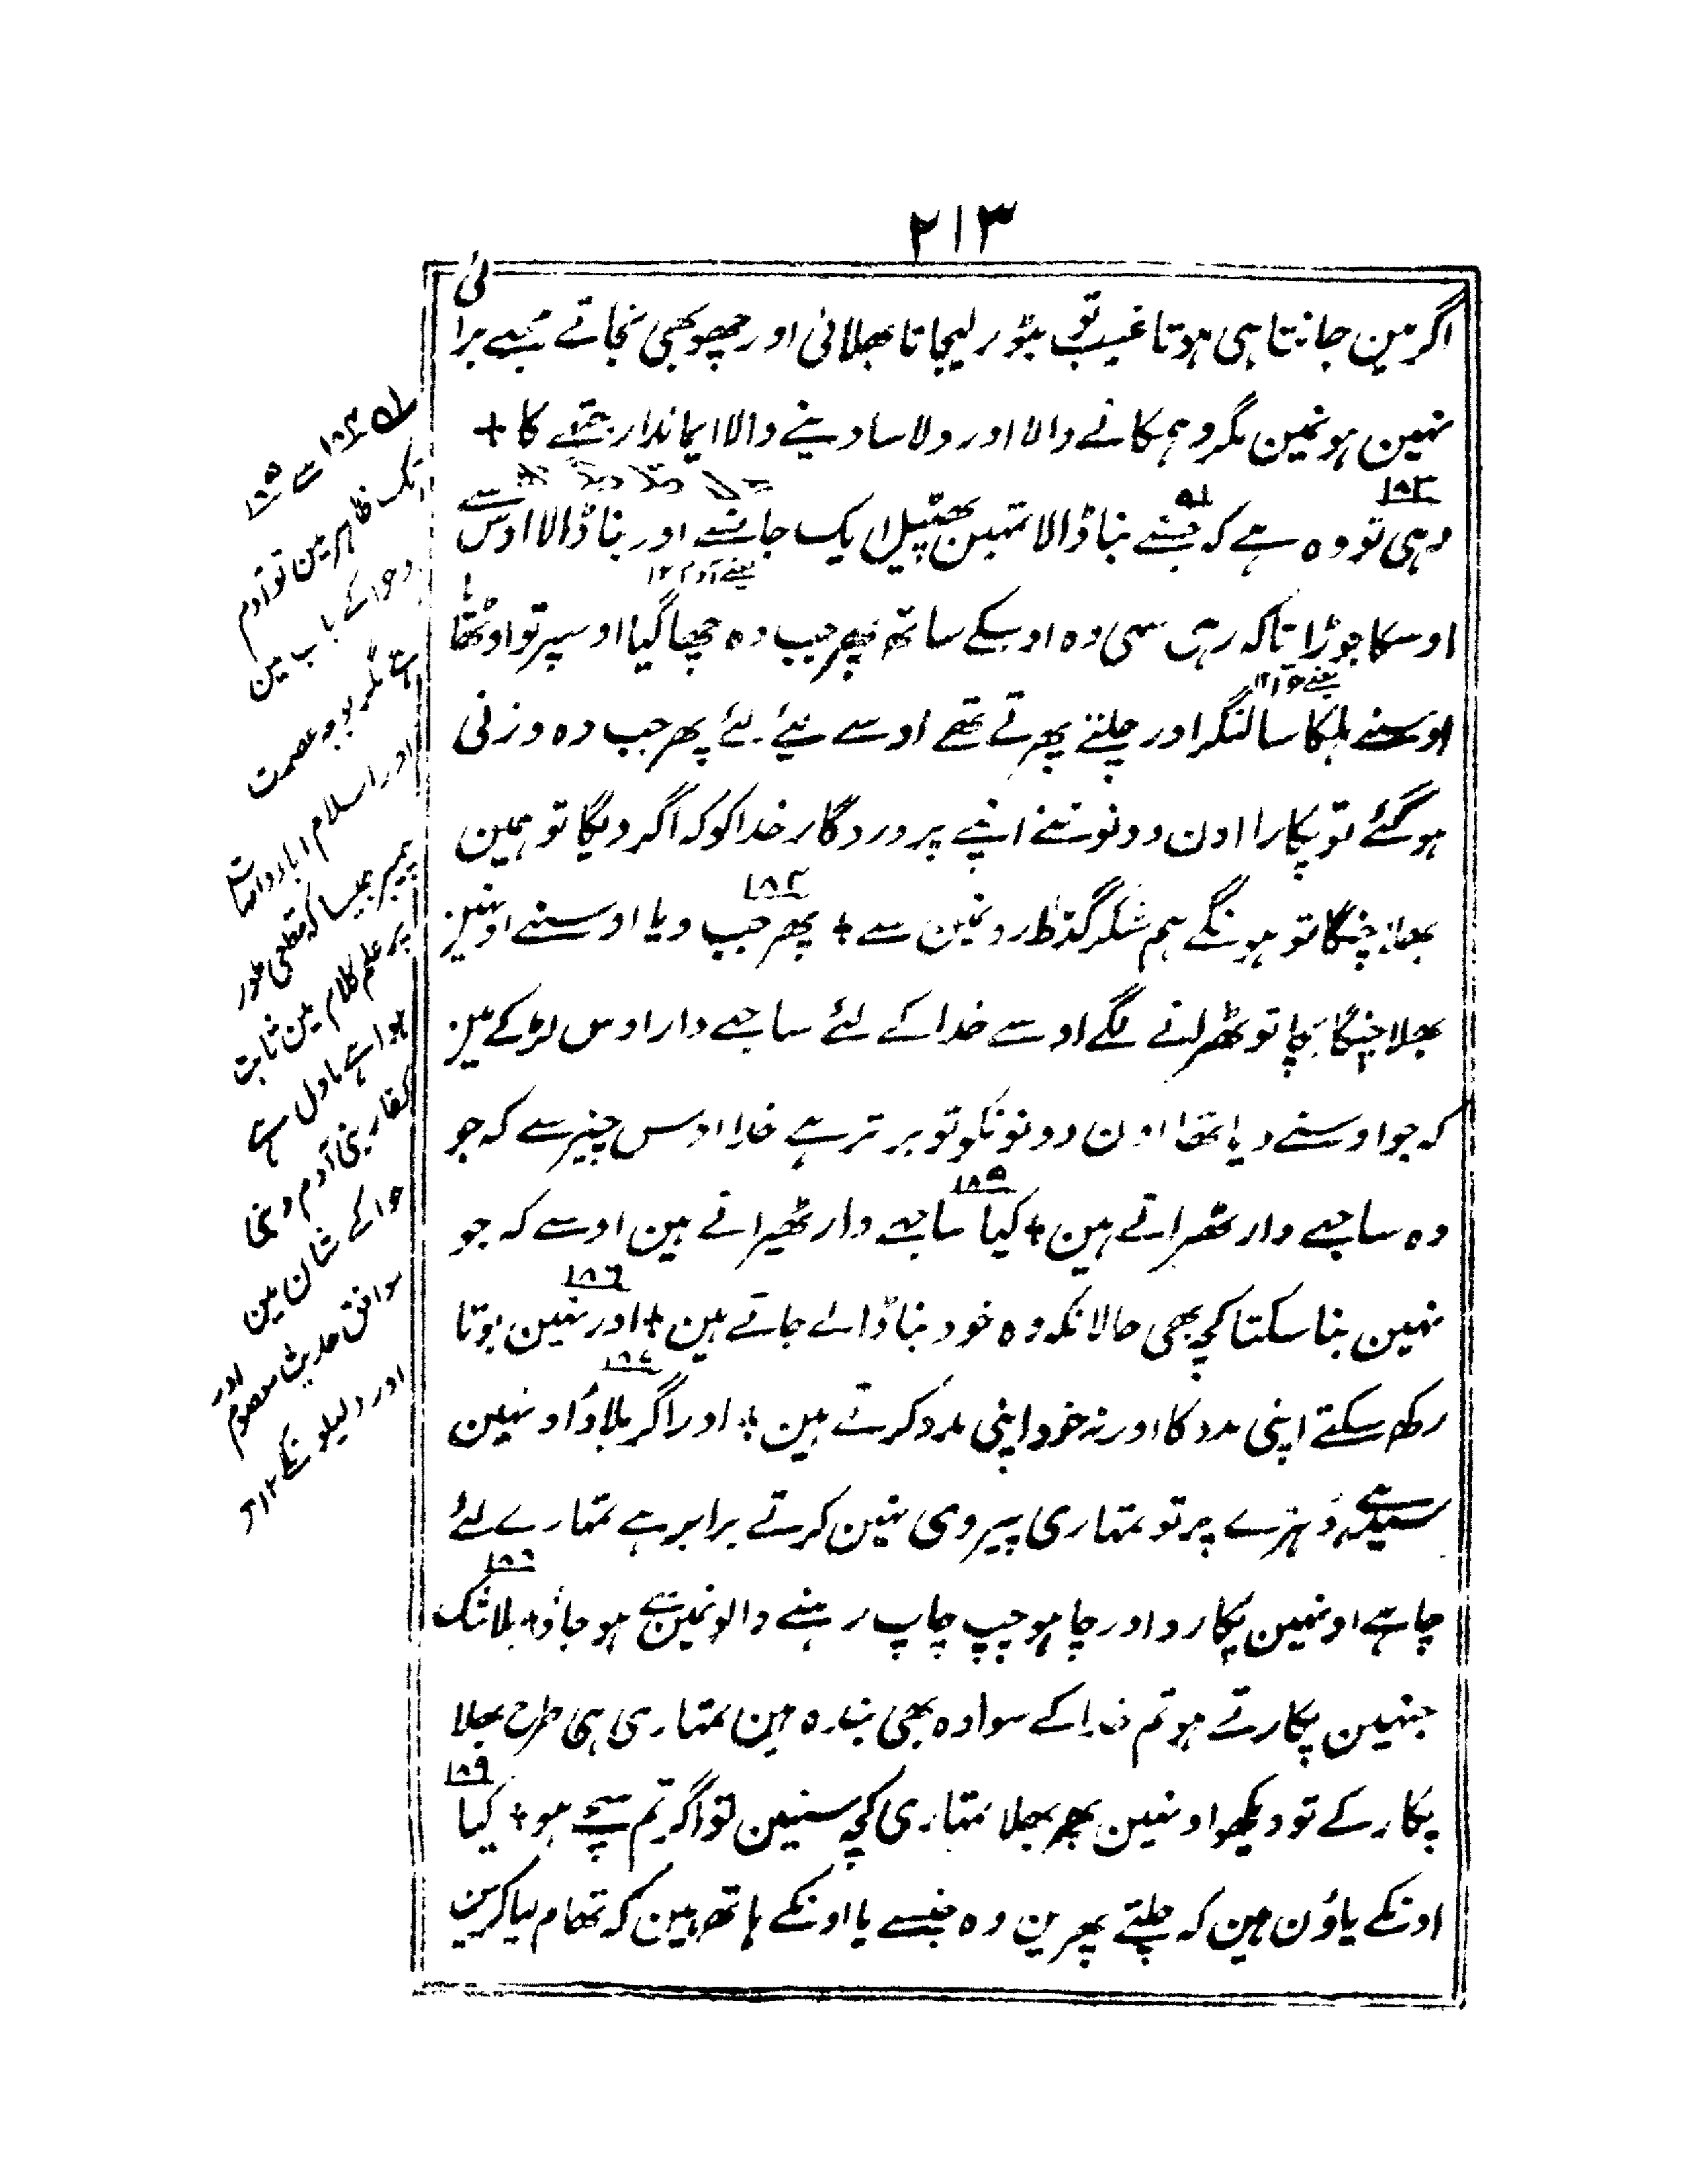 ۲۱۳
اگر مین جانتا ہی ہوتا غیب تو بٹور لیجاتا بھلائی اور چھو بھی نجاتے مجھے برائی
نہین ہونمین مگر دہمکانے والا اور دلاسا دینے والا ایماندار جتھے کا +
۱۸۳
وہی تو وہ ہے کہ جسنے بنا ڈالا تمہین ایک جانسے اور بنا ڈالا اوس سے
یعنے آدم ۱۲
اوسکا جوڑا تاکہ رہی سہی وہ اوسکے ساتھ پھر جب وہ چھا گیا اوسپر تو اوٹھا
یعنے حوا ۱۲
اوسنے ہلکا سا لنگر اور چلتے پھرتے تھے اوسے لئے لئے پھر جب وہ وزنی
ہو گئے تو پکارا اون دونو نے اپنے پروردگار خدا کو کہ اگر دیگا تو ہمین
۱۸۴
بھلا چنگا تو ہونگے ہم شکر گذارونمین سے + پھر جب دیا اوسنے اونہین
بھلا چنگا بچا تو ٹھرانے لگے اوسے خدا کے لئے ساجھے دار اوس لڑکے مین
کہ جو اوسنے دیا تھا اون دونونکو تو برتر ہے خدا اوس چیز سے کہ جو
۱۸۵
وہ ساجھے دار ٹھراتے ہین + کیا ساجھے دار ٹھیراتے ہین اوسے کہ جو
۱۸۶
نہین بنا سکتا کچھ بھی حالانکہ وہ خود بنا ڈالے جاتے ہین + اور نہین بوتا
۱۸۷
رکھ سکتے اپنی مدد کا اور نہ خود اپنی مدد کرتے ہین + اور اگر بلاؤ اونہین
سیدھے ڈہڑے پر تو تمہاری پیروی نہین کرتے برابر ہے تمہارے لئے
۱۸۸
چاہے اونہین پکارو اور چاہو چپ چاپ رہنے والونمین سے ہو جاؤ + بلاشک
جنہین پکارتے ہو تم خدا کے سوا وہ بھی بندہ ہین تمہاری ہی طرح بھلا
۱۸۹
پکار کے تو دیکھو اونہین پھر بھلا تمہاری کچھ سنین تو اگر تم سچے ہو + کیا
اونکے پاؤن ہین کہ چلتے پھرین وہ جنسے یا اونکے ہاتھ ہین کہ تھام لیا کرین
۱۸۳ سے ۱۸۵
تک ظاہر مین تو آدم
و حوا کے باب مین
ہے مگر بوجہ عصمت
اور اسلام
پیمبر جیسا کہ قطعی طور
پر علم کلام مین ثابت
ہوا ہے ماول ہے
کفار بنی آدم و بنی
حوا کے شان مین
موافق حدیث معصوم اور
اور دلیلونکے ۱۲